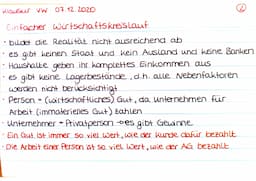 Klausur VW 07.12.2020
②
Einfacher Wirtschaftskreislauf
• bildet die Realität nicht ausreichend ab
• es gibt keinen Staat und kein Ausland und keine Banken
• Haushalte geben ihr komplettes Einkommen aus
• es gibt keine Lagerbestände, d.h. alle Nebenfaktoren
werden nicht berücksichtigt
• Person = (wirtschaftliches) Gut, da Unternehmen für
Arbeit (immaterielles Gut) zahlen
• Unternehmer = Privatperson → es gibt Gewinne
• Ein Gut ist immer so viel Wert, wie der Kunde dafür bezahlt
• Die Arbeit einer Person ist so viel Wert, wie der AG bezahlt